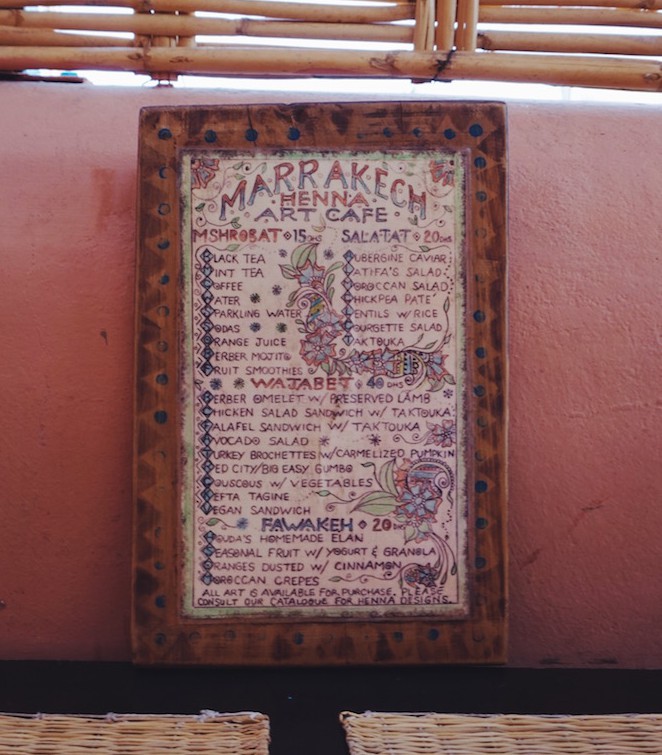 MARRAKECH
HENNA
ART CAFE
MSHROBAT 15DHS
BLACK TEA
MINT TEA
COFFEE
WATER
SPARKLING WATER
SODAS
ORANGE JUICE
BERBER MOJITO
FRUIT SMOOTHIES
SALATAT 20DHS
AUBERGINE CAVIAR
LATIFA'S SALAD
MOROCCAN SALAD
CHICKPEA PATE
LENTILS W/ RICE
COURGETTE SALAD
TAKTOUKA
WAJABET 40 DHS
BERBER OMELET W/ PRESERVED LAMB
CHICKEN SALAD SANDWICH W/ TAKTOUKA
FALAFEL SANDWICH W/ TAKTOUKA
AVOCADO SALAD
TURKEY BROCHETTES W/CARMELIZED PUMPKIN
RED CITY/BIG EASY GUMBO
COUSCOUS W/ VEGETABLES
KEFTA TAGINE
VEGAN SANDWICH
FAWAKEH 20 DHS
HOUDA'S HOMEMADE ELAN
SEASONAL FRUIT W/ YOGURT & GRANOLA
ORANGES DUSTED W/ CINNAMON
MOROCCAN CREPES
ALL ART IS AVAILABLE FOR PURCHASE. PLEASE
CONSULT OUR CATALOGUE FOR HENNA DESIGNS.